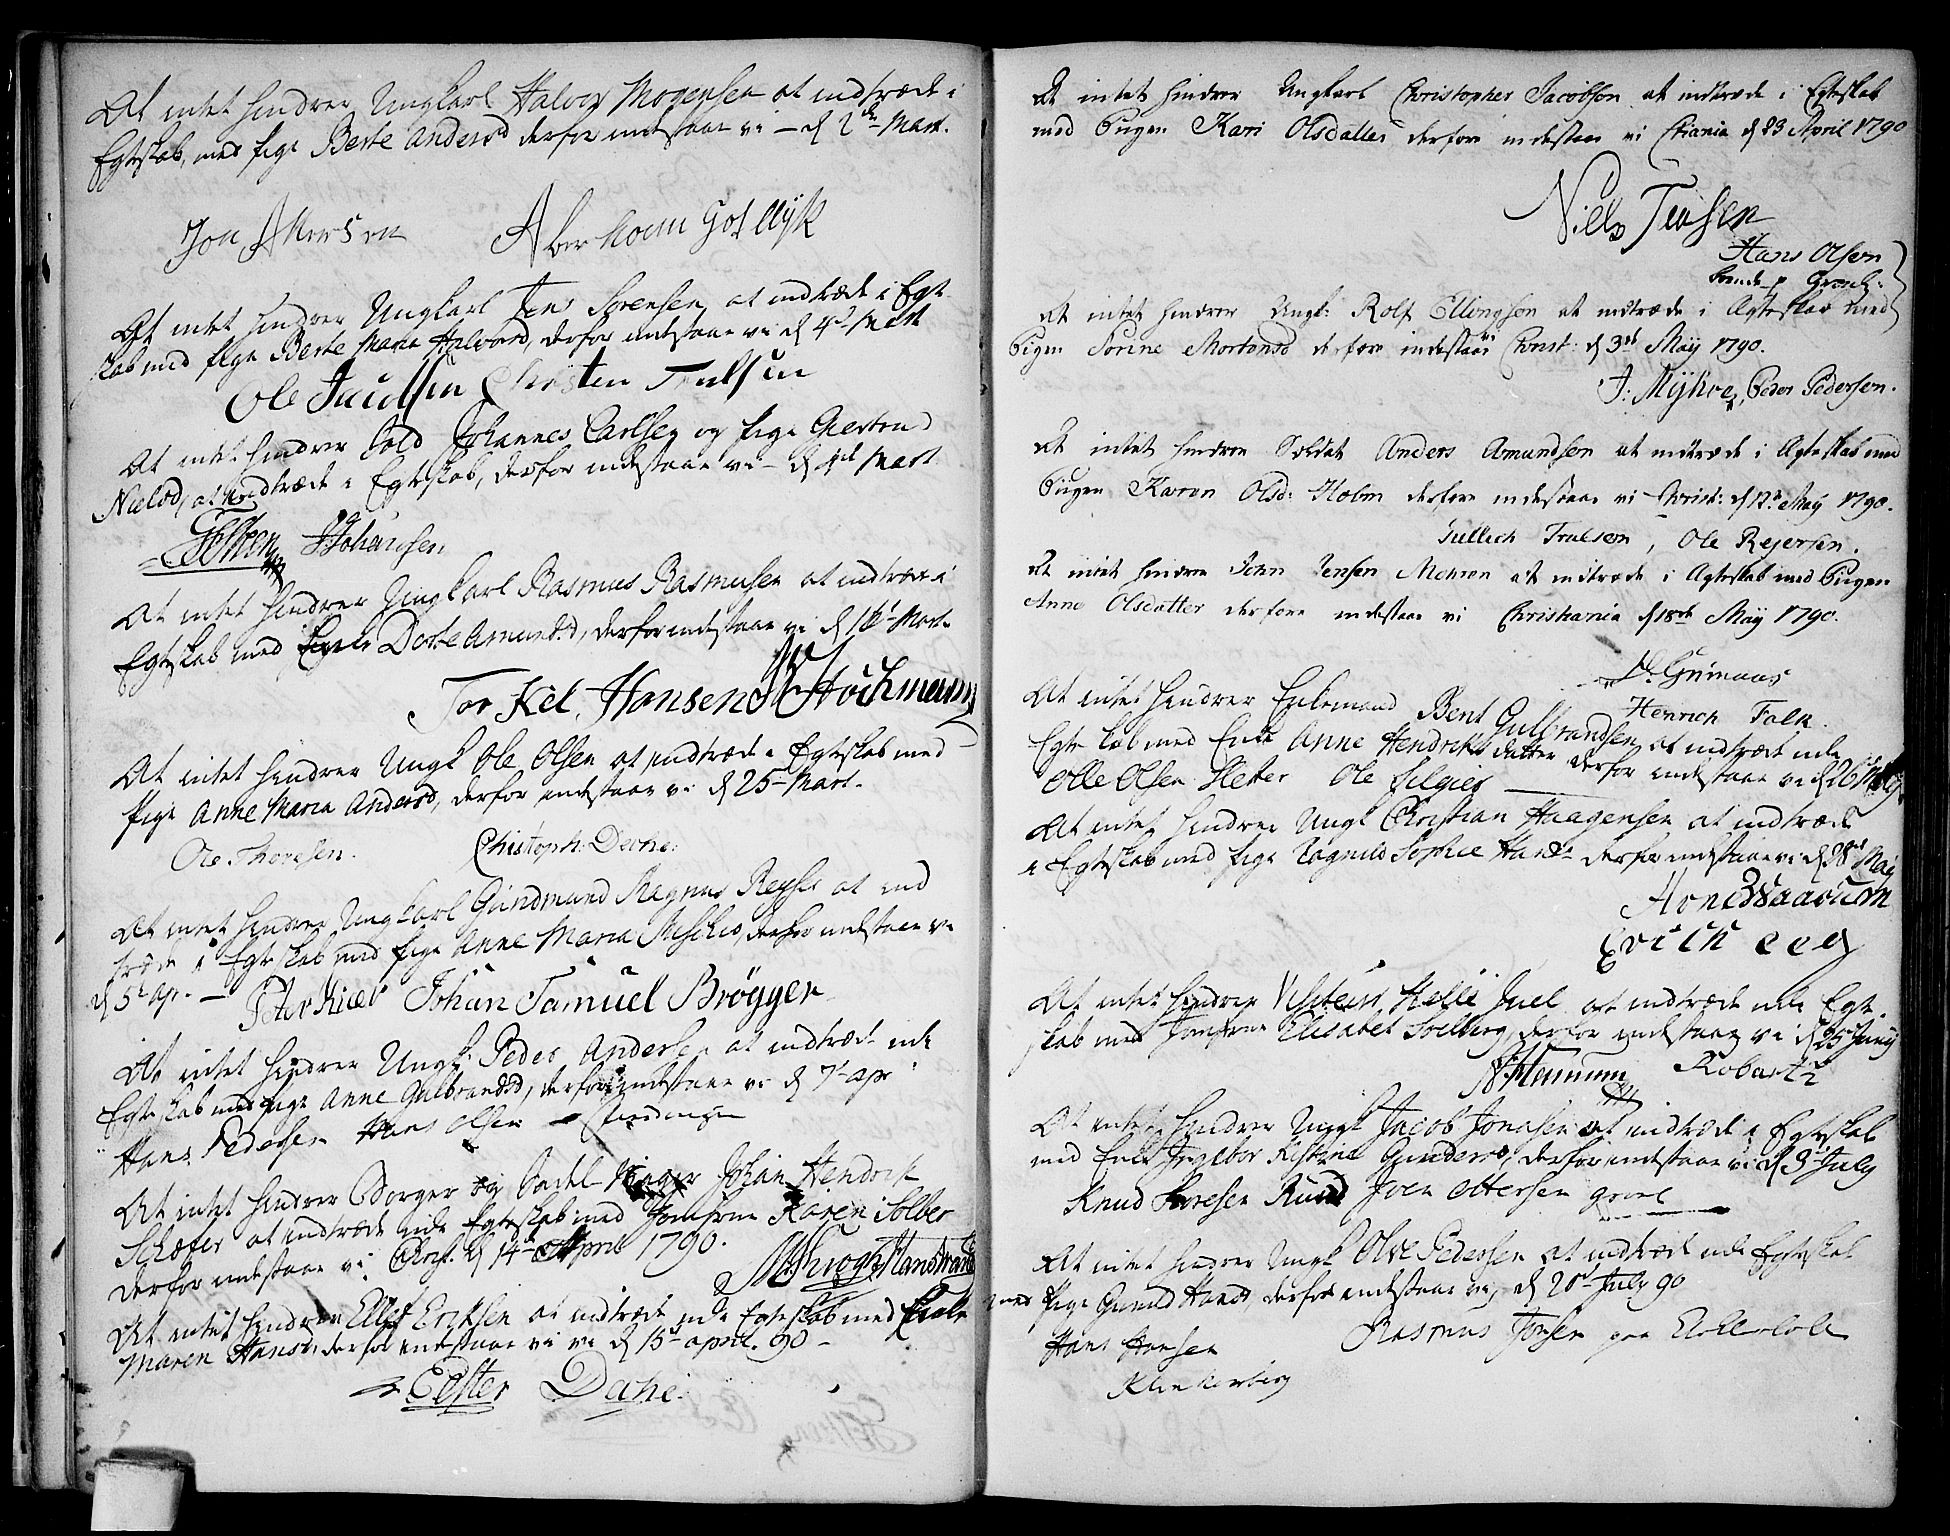 At intet hindrer Ungkarl Halvor Mogensen at indtræde i
Egteskab, med Pige Berte Andersd derfor indestaar vi – d 2den Mart.
Jon Abersen Aberham Gosllyk
At intet hindrer Ungkarl Jens Sørensen at indtræde i Egte
skab med Pige Berte Maria Halvord, derfor indestaar vi d 4d Mart
Ole Truelsen Christen Truelsen
At intet hindrer Sold Johannes Carlsen og Pige Giertrud
Nielsd, at indtræde i Egteskab, derfor indestaar vi – d 4de Mart
Johansen
At intet hindrer Ungkarl Rasmus Rasmusen at indtræde i
Egteskab med Dorte Amundsd, derfor indestaar vi d 16 Mart.
Tor Kel. Hansen Stockmann
At intet hindrer Ungk Ole Olsen at indtræde i Egteskab med
Pige Anne Maria Andersd, derfor indestaar vi d 25 Mart.
Ole Thoresen. Christoph: Derhe:
At intet hindrer Ungkarl Gundmund Magnus Reyhe at ind
træde i Egteskab med Pige Anne Maria, derfor indestaar vi
d 5t Ap. – Johan Samuel Brøgger
At intet hindrer Ungk Peder Andersen at indtræde udi
Egteskab med Pige Anne Gulbrandsd, derfor indestaar vi d 7 apr
Hans Pedersen Hans Olsen
At intet hindrer Borger og Sadelmager Johan Hendrik
Schæfer at indtræde udi Egteskab med Jomfrue Karen Solber
derfor indestaar vi Christ. d 14d April 1790.
M. Krogh
At intet hindrer Ellef Eriksen at indtræde udi Egteskab med Enke
Maren Hansd: derfor indestaar vi d 15d april. 90 –
Dahe.
At intet hindrer Ungkarl Christopher Jacobsen at indtræde i Egteskab
med Pigen Kari Olsdatter derfore indestaar vi Chania d 23 April 1790
Niels Jensen
Hans Olsen
At intet hindrer Ungk: Rolf Ellingsen at indtræde i Ægteskab med
Pigen Sorine Mortensd derfore indestaar vi Christ: d 3de May 1790.
J: Myhre, Peder Pedersen.
At intet hindrer Soldat Anders Amundsen at indtræde i Ægteskab med
Pigen Karen Olsd: Holm derfore indestaar vi Christ: d 12te May 1790.
Gullich Truelsen, Ole Rejersen.
At intet hindrer John Jensen Mohren at indtræde i Ægteskab med Pigen
Anne Olsdatter derfore indestaar vi Christiania d 18de May 1790.
Grimaas
Henrich Falk.
At intet hindrer Enkemand Bent Gulbrandsen at indtræde udi
Egteskab med Enke Anne Hendriksdatter derfor indestaar vi d 26 May
Olle Olsen Sleter Ole
At intet hindrer Ungk Christian Haagensen at indtræde
i Egteskab med Pige Ragnild Sophie Hansd derfor indestaar vi d 28d May
Arne Waarum
Erich eeg
At intet hindrer Juel at indtræde udi Egte
skab med Jomfrue Elisabet Solberg, derfor indestaar vi d 25 Juny
Robartz
At intet hindrer Ungk Jacob Jonasen at indtræde i Egteskab
med Enke Ingebor Kirstine Gundersd, derfor indestaar vi d 3d July
Knud Thoresen Ruud Joen Ottersen
At intet hindrer Ungk Olve Pedersen at indtræde udi Egteskab
med Pige Gunild Hansd, derfor indestaar vi, d 20d July 90
Hans Hansen Rasmus Jonsen paa
Klinkenberg